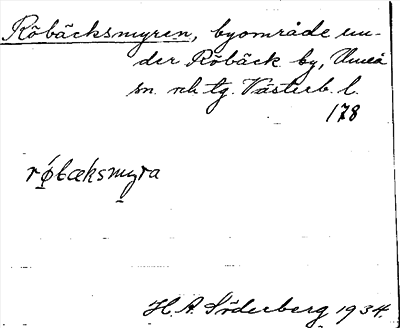 Röbäcksmyren, byområde un-
der Röbäck by, Umeå
sn. och tg. Västerb. l.
178
rǿbæksmyra
H. A. Söderberg 1934.